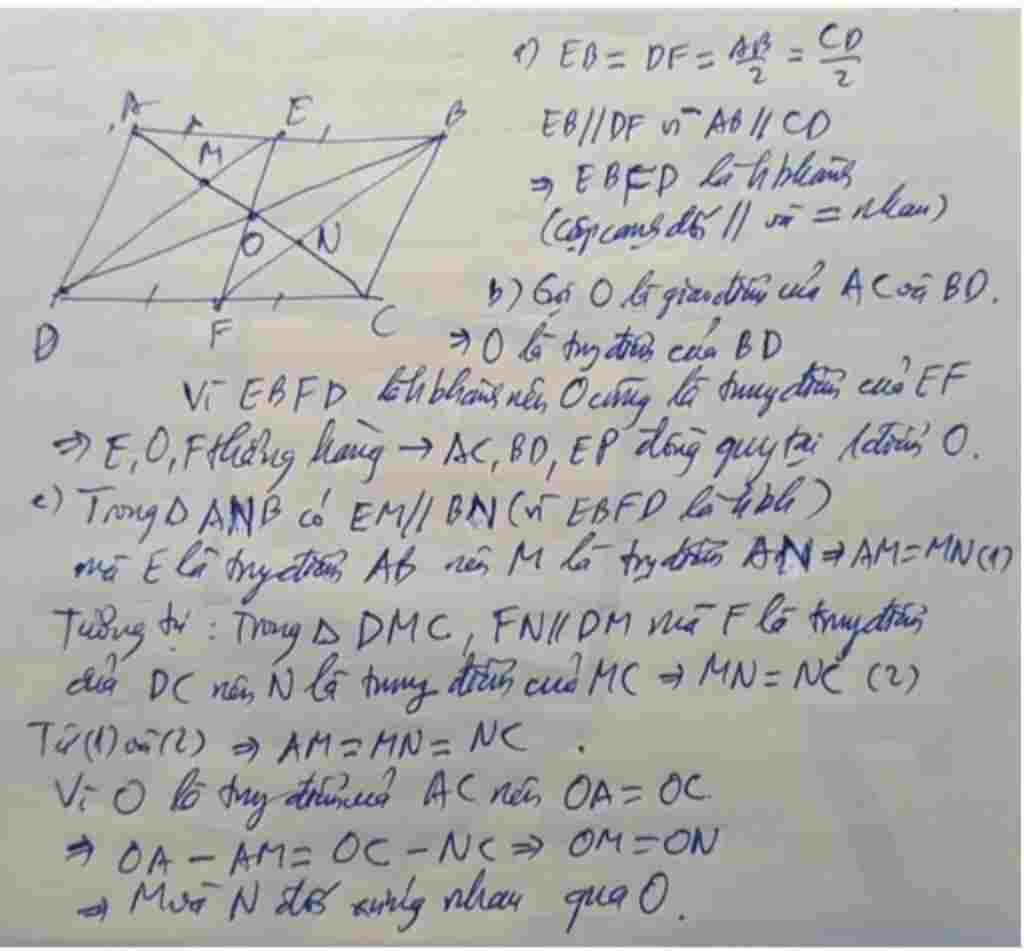 a) EB = DF = AB/2 = CD/2
EB // DF vì AB // CD
⇒ EBFD là hbhành
(cặp cạnh đối // và = nhau)
A E B
M
O N
D F C
b) Gọi O là giao điểm của AC và BD.
⇒ O là trung điểm của BD
Vì EBFD là hbhành nên O cũng là trung điểm của EF
⇒ E, O, F thẳng hàng → AC, BD, EF đồng quy tại 1 điểm O.
c) Trong Δ ANB có EM // BN (vì EBFD là hbh)
mà E là trung điểm AB nên M là trung điểm AN ⇒ AM = MN (1)
Tương tự : Trong Δ DMC, FN // DM mà F là trung điểm
của DC nên N là trung điểm của MC ⇒ MN = NC (2)
Từ (1) và (2) ⇒ AM = MN = NC .
Vì O là trung điểm của AC nên OA = OC.
⇒ OA − AM = OC − NC ⇒ OM = ON
⇒ M và N đối xứng nhau qua O.